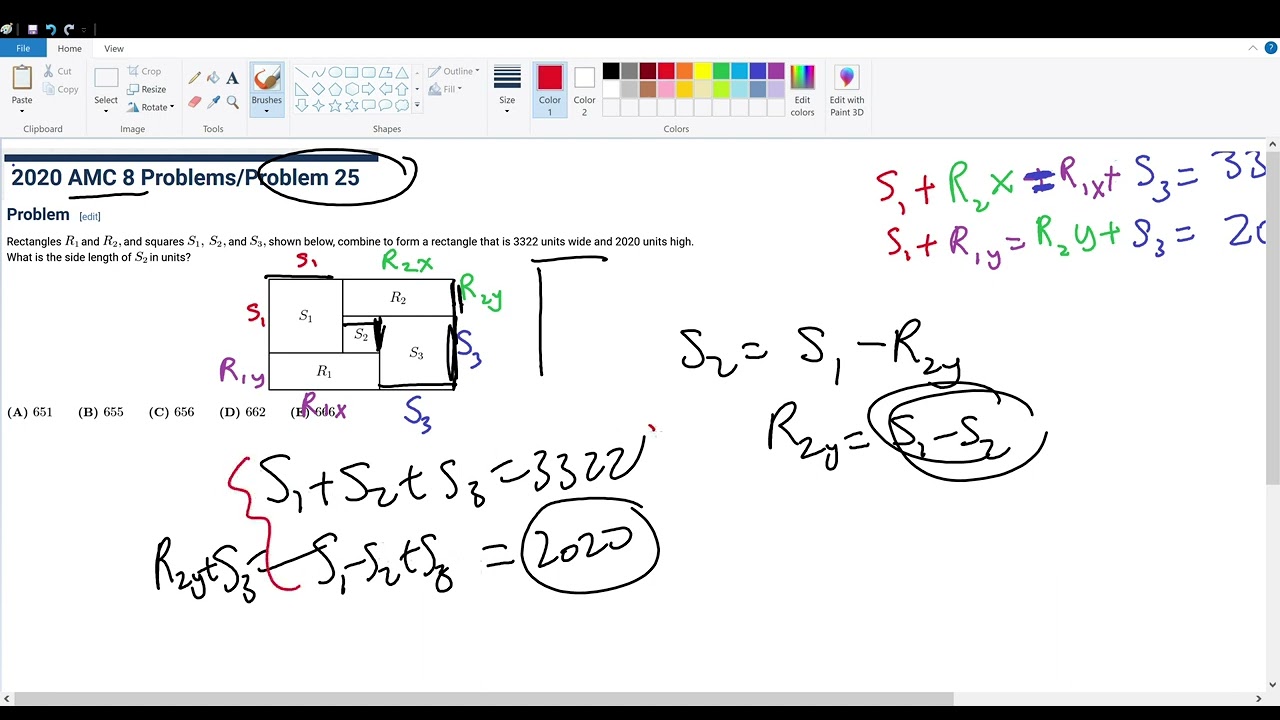 File Home View
Paste Cut Copy Clipboard
Select Crop Resize Rotate Image
Tools
Brushes
Outline Fill Shapes
Size
Color 1
Color 2
Colors
Edit colors
Edit with Paint 3D
2020 AMC 8 Problems/Problem 25
Problem [edit]
Rectangles R₁ and R₂, and squares S₁, S₂, and S₃, shown below, combine to form a rectangle that is 3322 units wide and 2020 units high.
What is the side length of S₂ in units?
S₁ R₂x
S₁ S₁ R₂ R₂y
S₂ S₃ S₃
R₁y R₁
R₁x S₃
(A) 651 (B) 655 (C) 656 (D) 662 (E) 666
S₁ + R₂x = R₁x + S₃ = 33
S₁ + R₁y = R₂y + S₃ = 20
S₂ = S₁ - R₂y
R₂y = S₁ - S₂
S₁ + S₂ + S₃ = 3322
R₂y + S₃ = S₁ - S₂ + S₃ = 2020